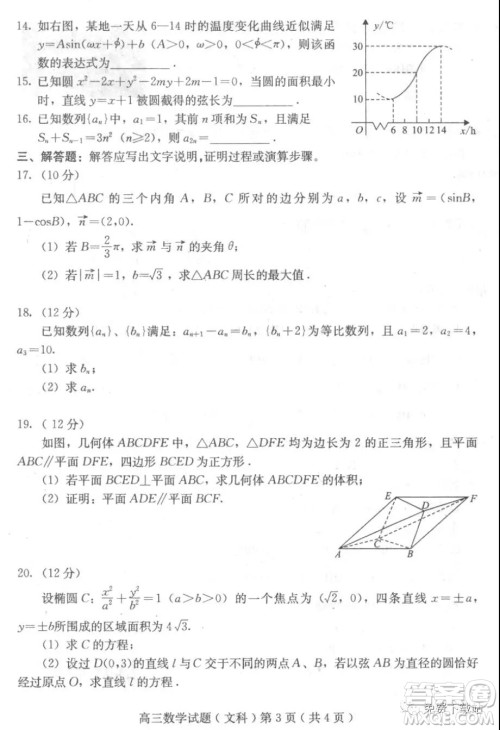 14. 如右图，某地一天从 6—14 时的温度变化曲线近似满足
y=Asin(ωx+ϕ)+b (A>0，ω>0，0<ϕ<π)，则该函
数的表达式为__________.
15. 已知圆 x²-2x+y²-2my+2m-1=0，当圆的面积最小
时，直线 y=x+1 被圆截得的弦长为__________.
16. 已知数列{aₙ}中，a₁=1，其前 n 项和为 Sₙ，且满足
Sₙ+Sₙ₋₁=3n² (n≥2)，则 aₙ=__________.
y/℃
30
20
10
O
6 8 10 12 14
x/h
三、解答题：解答应写出文字说明，证明过程或演算步骤。
17. (10 分)
已知△ABC 的三个内角 A、B、C 所对的边分别为 a、b、c，设 m⃗=(sinB，
1-cosB)，n⃗=(2，0).
(1) 若 B=2/3π，求 m⃗ 与 n⃗ 的夹角 θ；
(2) 若|m⃗|=1，b=√3，求△ABC 周长的最大值.
18. (12 分)
已知数列{aₙ}、{bₙ}满足：aₙ₊₁-aₙ=bₙ，{bₙ+2}为等比数列，且 a₁=2，a₂=4，
a₃=10.
(1) 求 bₙ；
(2) 求 aₙ.
19. (12 分)
如图，几何体 ABCDFE 中，△ABC，△DFE 均为边长为 2 的正三角形，且平面
ABC∥平面 DFE，四边形 BCED 为正方形.
(1) 若平面 BCED⊥平面 ABC，求几何体 ABCDFE 的体积；
(2) 证明：平面 ADE∥平面 BCF.
E
F
D
C
A
B
20. (12 分)
设椭圆 C：x²/a²+y²/b²=1 (a>b>0)的一个焦点为(√2，0)，四条直线 x=±a，
y=±b 所围成的区域面积为 4√3.
(1) 求 C 的方程；
(2) 设过 D(0，3)的直线 l 与 C 交于不同的两点 A、B，且以 AB 为直径的圆恰好
经过原点 O，求直线 l 的方程.
高三数学试题(文科)第 3 页(共 4 页)